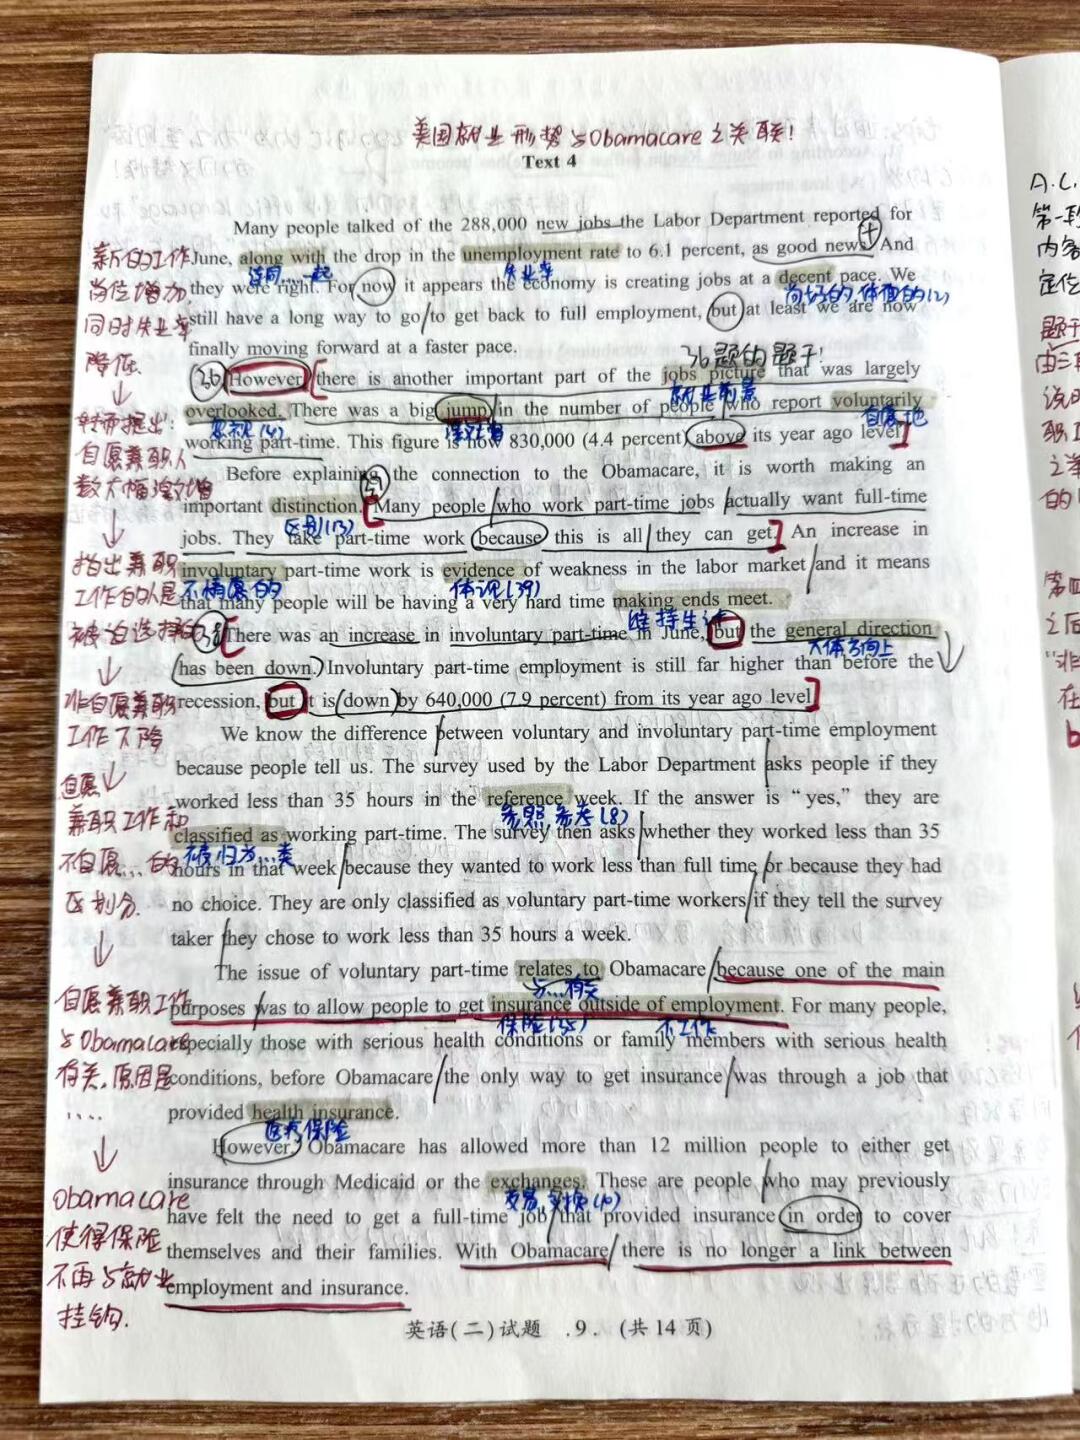 美国就业形势与Obamacare之关联!
Text 4
Many people talked of the 288,000 new jobs the Labor Department reported for
June, along with the drop in the unemployment rate to 6.1 percent, as good news. And
they were right. For now it appears the economy is creating jobs at a decent pace. We
still have a long way to go to get back to full employment, but at least we are now
finally moving forward at a faster pace.
However there is another important part of the jobs picture that was largely
overlooked. There was a big jump in the number of people who report voluntarily
working part-time. This figure is now 830,000 (4.4 percent) above its year ago level.
Before explaining the connection to the Obamacare, it is worth making an
important distinction. Many people who work part-time jobs actually want full-time
jobs. They take part-time work because this is all they can get. An increase in
involuntary part-time work is evidence of weakness in the labor market and it means
that many people will be having a very hard time making ends meet.
There was an increase in involuntary part-time in June, but the general direction
has been down. Involuntary part-time employment is still far higher than before the
recession, but it is down by 640,000 (7.9 percent) from its year ago level.
We know the difference between voluntary and involuntary part-time employment
because people tell us. The survey used by the Labor Department asks people if they
worked less than 35 hours in the reference week. If the answer is “yes,” they are
classified as working part-time. The survey then asks whether they worked less than 35
hours in that week because they wanted to work less than full time or because they had
no choice. They are only classified as voluntary part-time workers if they tell the survey
taker they chose to work less than 35 hours a week.
The issue of voluntary part-time relates to Obamacare because one of the main
purposes was to allow people to get insurance outside of employment. For many people,
especially those with serious health conditions or family members with serious health
conditions, before Obamacare the only way to get insurance was through a job that
provided health insurance.
However, Obamacare has allowed more than 12 million people to either get
insurance through Medicaid or the exchanges. These are people who may previously
have felt the need to get a full-time job that provided insurance in order to cover
themselves and their families. With Obamacare there is no longer a link between
employment and insurance.
英语(二)试题 .9. (共14页)
新的工作
岗位增加,
同时失业率
降低
↓
转而提出:
自愿兼职人
数大幅激增
↓
指出兼职
工作的人是
被迫选择的
↓
非自愿兼职
工作下降
↓
自愿
兼职工作和
不自愿...的
区划分.
↓
自愿兼职工作
与Obamacare
有关,原因是
....
↓
Obamacare
使得保险
不再与就业
挂钩.
连同...一起
失业率
尚好的,体面的(2)
36题的题干!
就业前景
36
忽视(4)
激增
自愿地
37
区别(13)
不情愿的
体现(39)
维持生计
38
大体方向上
参照,参考(8)
被归为...类
与...有关
保险(35)
不工作
医疗保险
交易,交换(10)
A.C.
第一段
内容
定位
题干